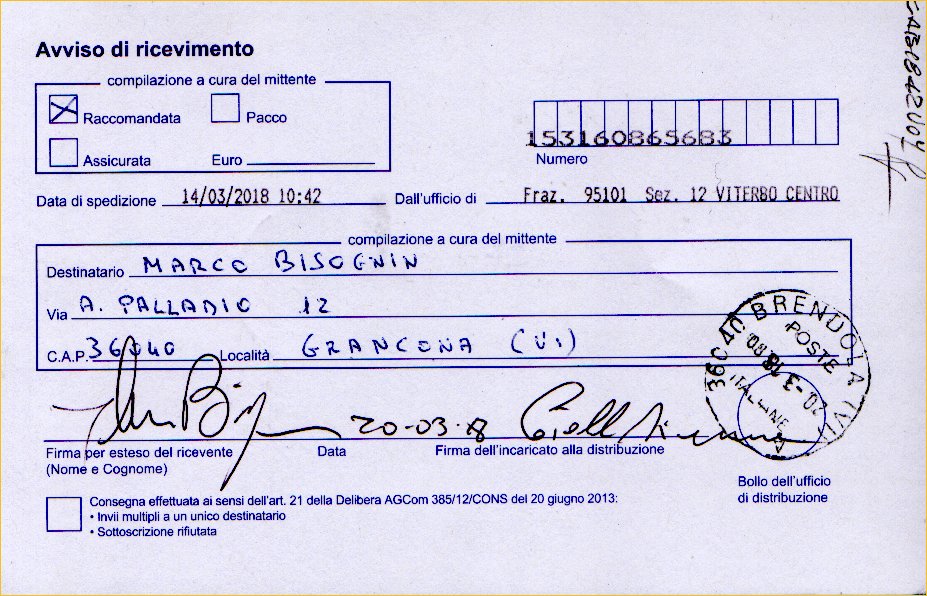 Avviso di ricevimento
compilazione a cura del mittente
Raccomandata Pacco
Assicurata Euro
153160865683
Numero
Data di spedizione 14/03/2018 10:42 Dall'ufficio di Fraz. 95101 Sez. 12 VITERBO CENTRO
compilazione a cura del mittente
Destinatario MARCO BISOGNIN
Via A. PALLADIO 12
C.A.P. 36040 Località GRANCONA (VI)
36040 BRENDOLA (VI)
POSTE
20-3 18
ITALIANE
20-03-18
Firma per esteso del ricevente Data Firma dell'incaricato alla distribuzione
(Nome e Cognome)
Bollo dell'ufficio
di distribuzione
Consegna effettuata ai sensi dell'art. 21 della Delibera AGCom 385/12/CONS del 20 giugno 2013:
• Invii multipli a un unico destinatario
• Sottoscrizione rifiutata